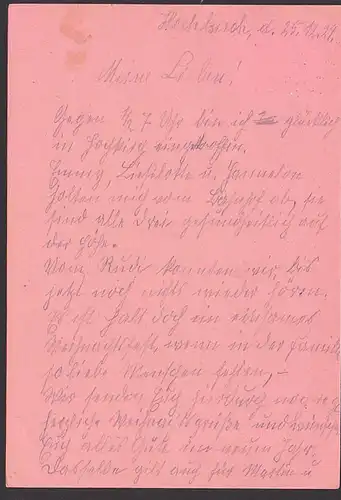 Hochkirch, d. 25.12.29.
Meine Lieben!
Gegen ½ 7 Uhr bin ich glücklich
in Hochkirch eingetroffen.
Emmy, Liselotte u. Hannelore
holten mich vom Bahnhof ab, sie
sind alle drei gesundheitlich auf
der Höhe.
Vom Rudi konnten wir bis
jetzt noch nichts wieder hören.
Es ist halt doch ein einsames
Weihnachtsfest, wenn in der Familie
so liebe Menschen fehlen, –
Wir senden Euch hierdurch noch
herzliche Weihnachtsgrüße und wünschen
Euch alles Gute im neuen Jahr.
Dasselbe gilt auch für Martin u